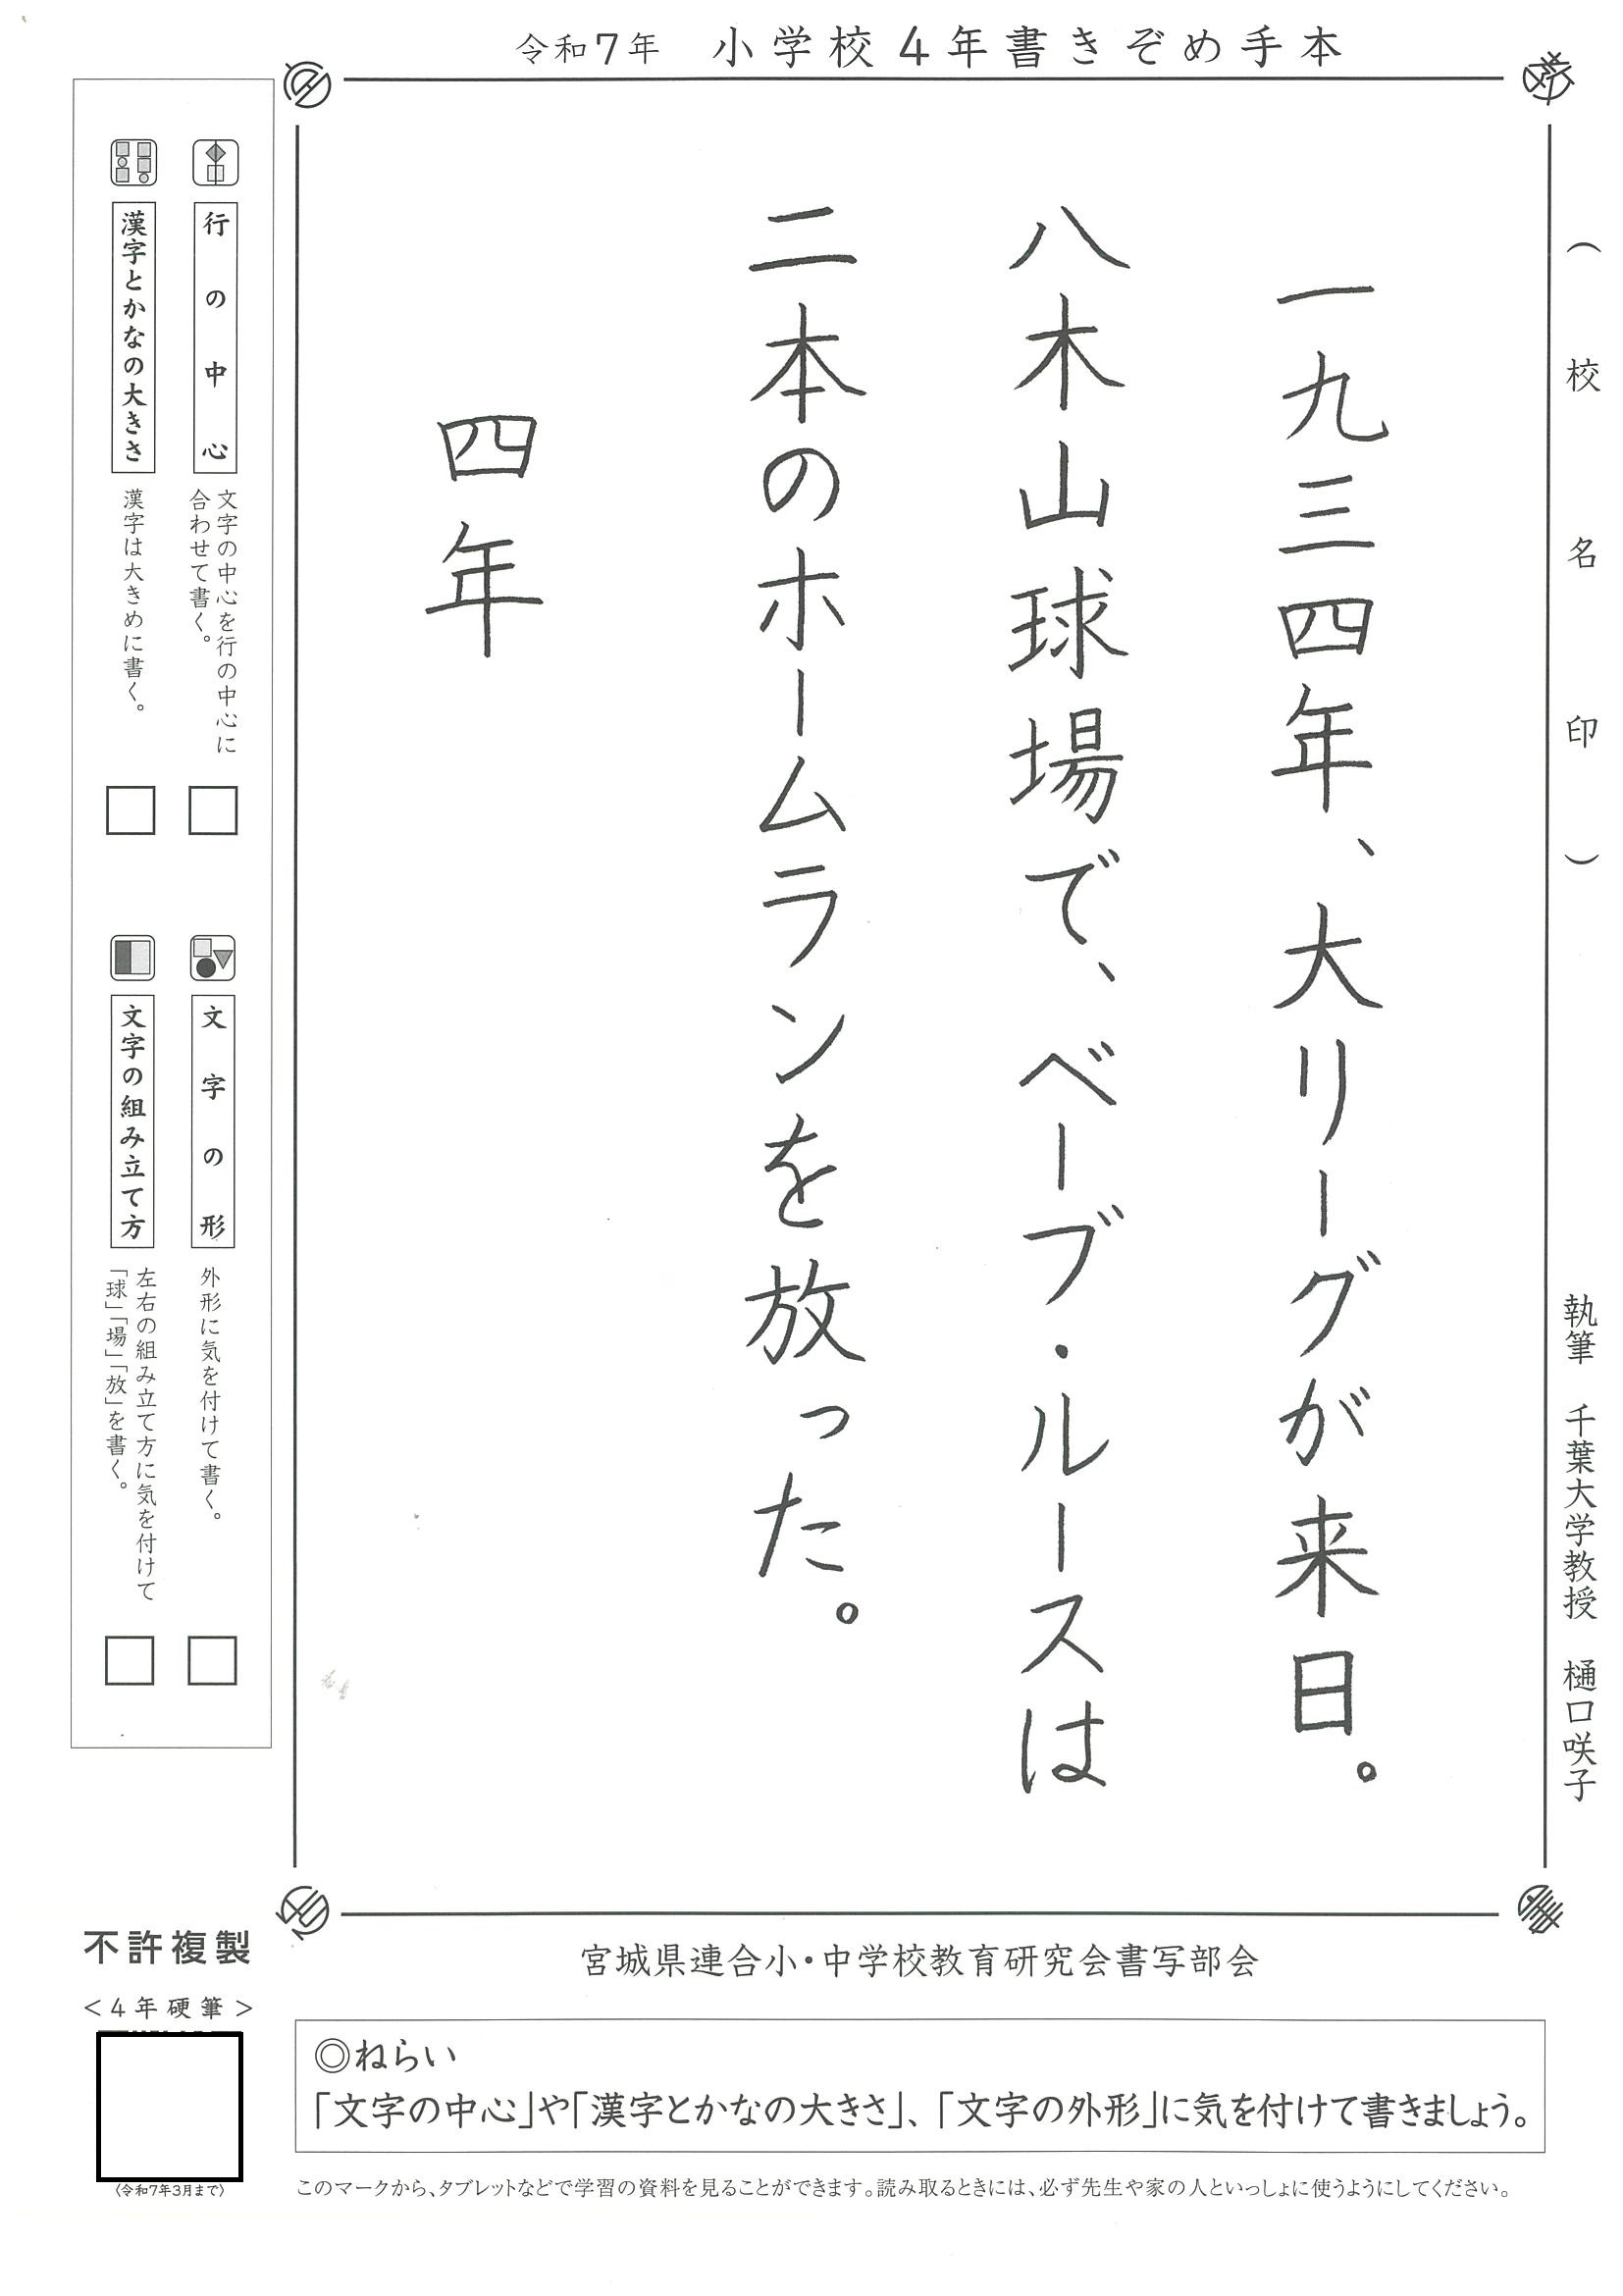 令和7年 小学校4年書きぞめ手本
(校名印)
執筆 千葉大学教授 樋口咲子
一九三四年、大リーグが来日。
八木山球場で、ベーブ・ルースは
二本のホームランを放った。
四年
行の中心
文字の中心を行の中心に
合わせて書く。
漢字とかなの大きさ
漢字は大きめに書く。
文字の形
外形に気を付けて書く。
文字の組み立て方
左右の組み立て方に気を付けて
「球」「場」「放」を書く。
宮城県連合小・中学校教育研究会書写部会
不許複製
<4年硬筆>
〈令和7年3月まで〉
◎ねらい
「文字の中心」や「漢字とかなの大きさ」、「文字の外形」に気を付けて書きましょう。
このマークから、タブレットなどで学習の資料を見ることができます。読み取るときには、必ず先生や家の人といっしょに使うようにしてください。